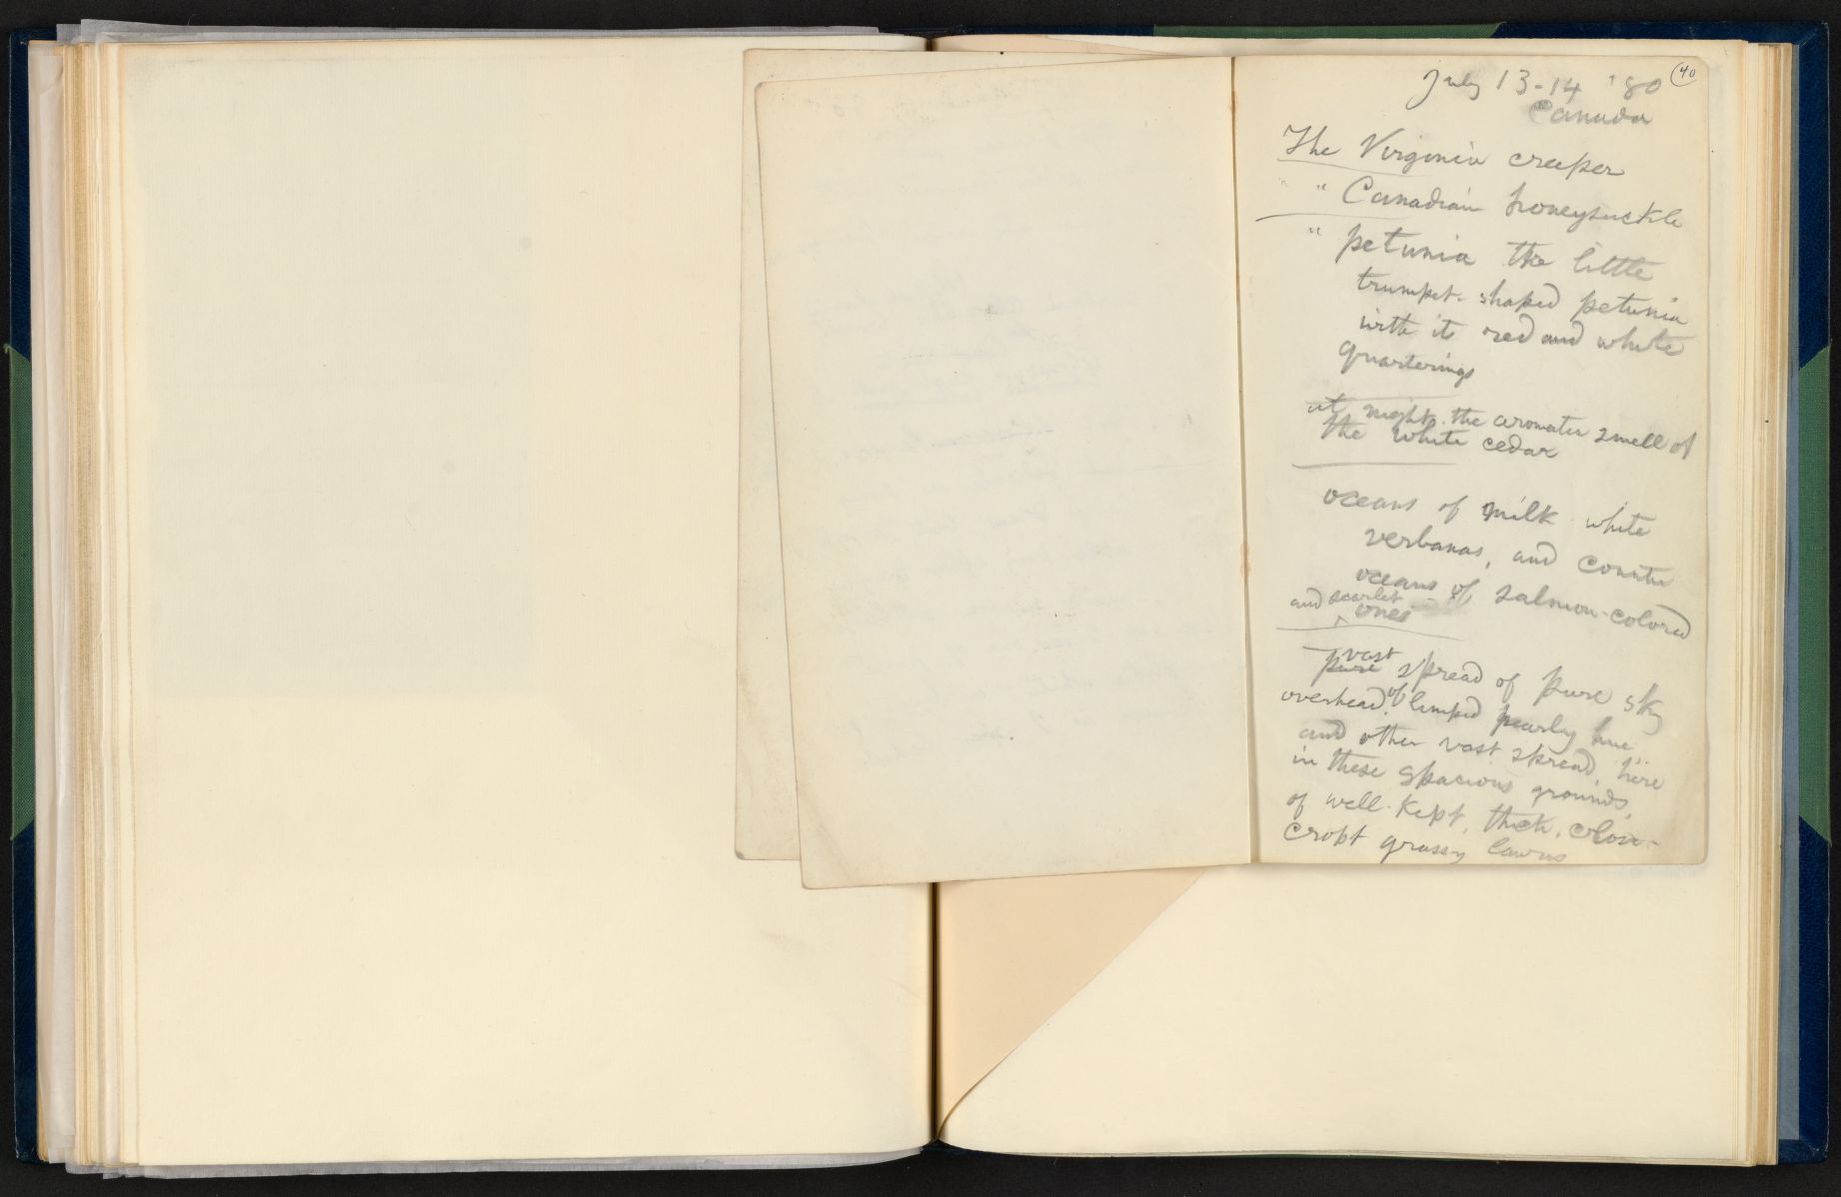 July 13-14 '80 40
Canada
The Virginia creeper
" " Canadian honeysuckle
" petunia the little
trumpet-shaped petunia
with its red and white
quarterings
at night, the aromatic smell of
the white cedar
oceans of milk-white
verbanas, and counter
oceans of salmon-colored
and scarlet
ones
vast
pure spread of pure sky
overhead, of limpid pearly hue
and other vast spread, here
in these spacious grounds,
of well-kept, thick, close-
cropt grassy lawns